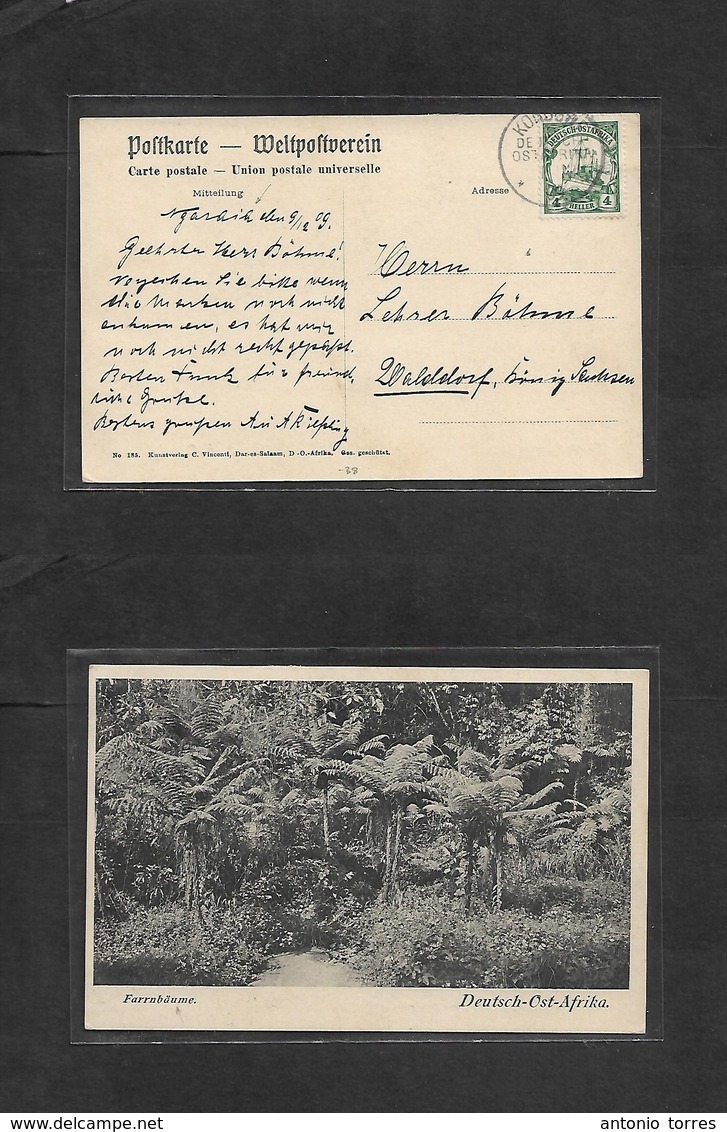 Postkarte — Weltpostverein
Carte postale — Union postale universelle
Mitteilung
Adresse
DEUTSCH-OSTAFRIKA
4 HELLER 4
den 9/12 09.
Geehrter Herr Böhme!
Sie bitte wenn
die Marken noch nicht
ankommen, es hat mir
noch nicht recht gepaßt.
Besten Dank für freund,
liche Grüße.
Bestens grüßen
Herrn
Lehrer Böhme
Walddorf, König Sachsen
No 185. Kunstverlag C. Vincenti, Dar-es-Salaam, D-O.-Afrika. Ges. geschützt.
-38
Farrnbäume.
Deutsch-Ost-Afrika.
antonio torres